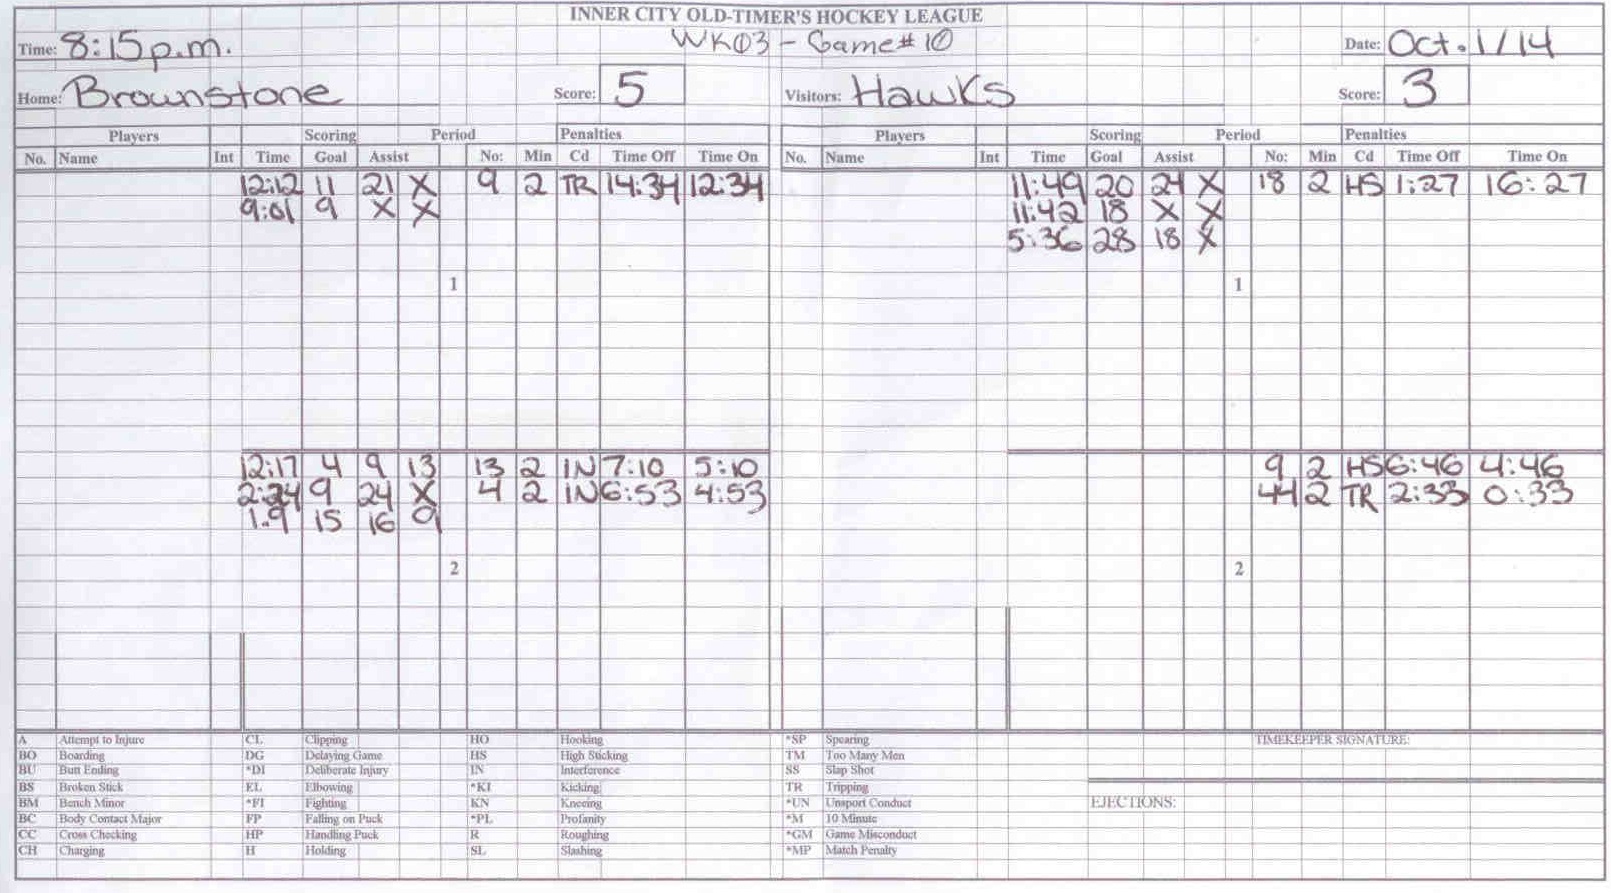 INNER CITY OLD-TIMER'S HOCKEY LEAGUE
Time: 8:15 p.m. WK03 - Game# 10 Date: Oct. 1/14
Home: Brownstone Score: 5 Visitors: Hawks Score: 3
Players Scoring Period Penalties Players Scoring Period Penalties
No. Name Int Time Goal Assist No: Min Cd Time Off Time On No. Name Int Time Goal Assist No: Min Cd Time Off Time On
12:12 11 21 X 9 2 TR 14:34 12:34 11:49 20 24 X 18 2 HS 1:27 16:27
9:01 9 X X 11:42 18 X X
5:36 28 18 X
1 1
12:17 4 9 13 13 2 IN 7:10 5:10 9 2 HS 6:46 4:46
2:24 9 24 X 4 2 IN 6:53 4:53 44 2 TR 2:33 0:33
1.9 15 16 9
2 2
A Attempt to Injure CL Clipping HO Hooking *SP Spearing TIMEKEEPER SIGNATURE:
BO Boarding DG Delaying Game HS High Sticking TM Too Many Men
BU Butt Ending *DI Deliberate Injury IN Interference SS Slap Shot
BS Broken Stick EL Elbowing *KI Kicking TR Tripping
BM Bench Minor *FI Fighting KN Kneeing *UN Unsport Conduct EJECTIONS:
BC Body Contact Major FP Falling on Puck *PL Profanity *M 10 Minute
CC Cross Checking HP Handling Puck R Roughing *GM Game Misconduct
CH Charging H Holding SL Slashing *MP Match Penalty